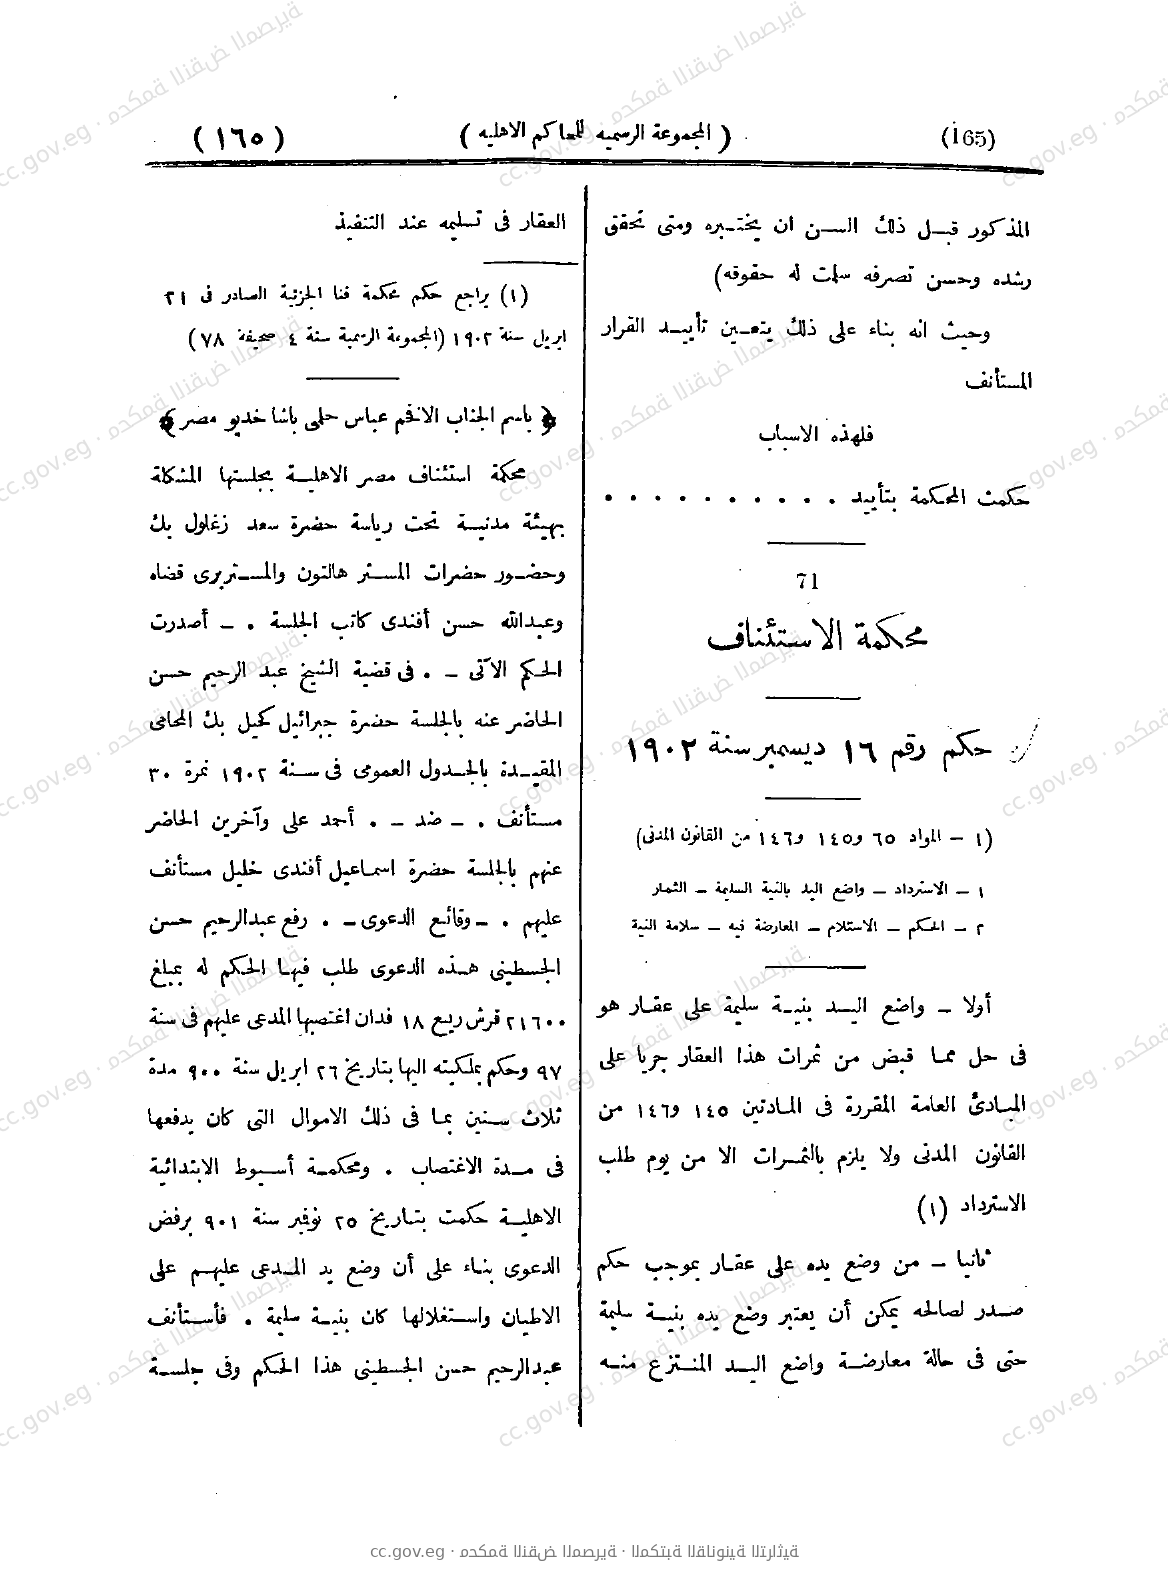 (165)
( المجموعة الرسميه للمحاكم الاهليه )
( ١٦٥ )
المذكور قبل ذلك السن ان يختبره ومتى تحقق
رشده وحسن تصرفه سلمت له حقوقه)
وحيث انه بناء على ذلك يتعين تأييد القرار
المستأنف
فلهذه الاسباب
حكمت المحكمة بتأييد . . . . . . . . . .
71
محكمة الاستئناف
حكم رقم ١٦ ديسمبر سنة ١٩٠٢
(١ – المواد ٦٥ و١٤٥ و١٤٦ من القانون المدنى)
١ – الاسترداد – واضع اليد بالنية السليمة – الثمار
٢ – الحكم – الاستلام – المعارضة فيه – سلامة النية
أولا – واضع اليد بنية سليمة على عقار هو
فى حل مما قبض من ثمرات هذا العقار جريا على
المبادئ العامة المقررة فى المادتين ١٤٥ و١٤٦ من
القانون المدنى ولا يلزم بالثمرات الا من يوم طلب
الاسترداد (١)
ثانيا – من وضع يده على عقار بموجب حكم
صدر لصالحه يمكن أن يعتبر وضع يده بنية سليمة
حتى فى حالة معارضة واضع اليد المنتزع منه
العقار فى تسليمه عند التنفيذ
(١) يراجع حكم محكمة قنا الجزئية الصادر فى ٢١
ابريل سنة ١٩٠٢ (المجموعة الرسمية سنة ٤ صحيفة ٧٨)
﴿ باسم الجناب الافخم عباس حلمى باشا خديو مصر ﴾
محكمة استئناف مصر الاهلية بجلستها المشكلة
بهيئة مدنية تحت رياسة حضرة سعد زغلول بك
وحضور حضرات المستر هالتون والمستربرى قضاه
وعبدالله حسن أفندى كاتب الجلسة . – أصدرت
الحكم الآتى – . فى قضية الشيخ عبد الرحيم حسن
الحاضر عنه بالجلسة حضرة جبرائيل كحيل بك المحامى
المقيدة بالجدول العمومى فى سنة ١٩٠٢ نمرة ٣٠
مستأنف . – ضد – . أحمد على وآخرين الحاضر
عنهم بالجلسة حضرة اسماعيل أفندى خليل مستأنف
عليهم . – وقائع الدعوى – . رفع عبدالرحيم حسن
الجسطينى هذه الدعوى طلب فيها الحكم له بمبلغ
٢١٦٠٠ قرش ريع ١٨ فدان اغتصبها المدعى عليهم فى سنة
٩٧ وحكم بملكيته اليها بتاريخ ٢٦ ابريل سنة ٩٠٠ مدة
ثلاث سنين بما فى ذلك الاموال التى كان يدفعها
فى مدة الاغتصاب . ومحكمة أسيوط الابتدائية
الاهلية حكمت بتاريخ ٢٥ نوفمبر سنة ٩٠١ برفض
الدعوى بناء على أن وضع يد المدعى عليهم على
الاطيان واستغلالها كان بنية سليمة . فأستأنف
عبدالرحيم حسن الجسطينى هذا الحكم وفى جلسة
cc.gov.eg · محكمة النقض المصرية · المكتبة القانونية التراثية